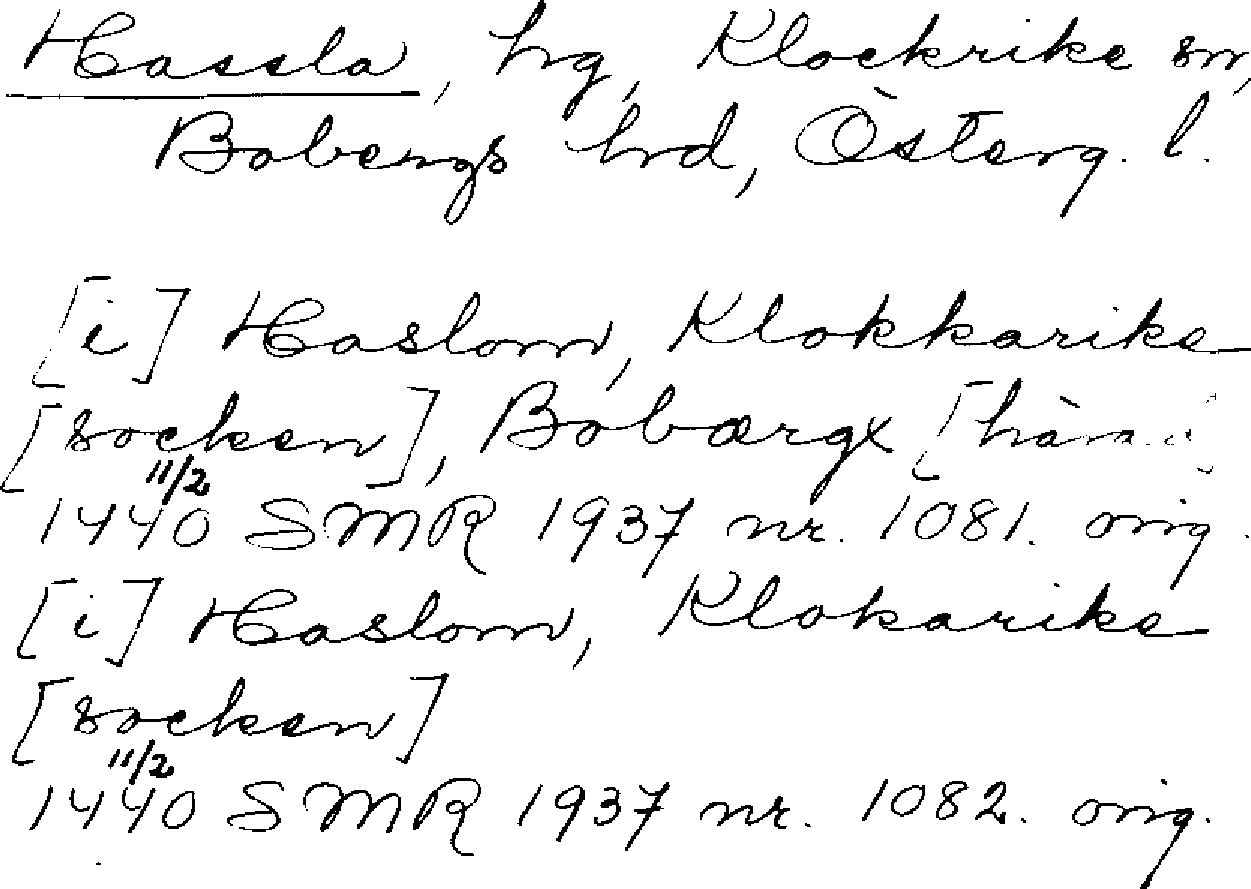 Hassla, hg, Klockrike sn,
Bobergs hrd, Österg. l.
[i] Haslom, Klokkarike
[socken], Bobærgx
11/2
1440 SMR 1937 nr. 1081. orig.
[i] Haslom, Klokarike
[socken]
11/2
1440 SMR 1937 nr. 1082. orig.